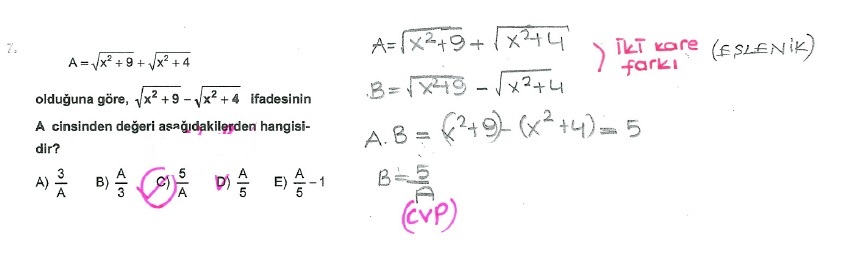 7.
A = √x² + 9 + √x² + 4
olduğuna göre, √x² + 9 − √x² + 4 ifadesinin
A cinsinden değeri aşağıdakilerden hangisi-
dir?
A) 3/A B) A/3 C) 5/A D) A/5 E) A/5 − 1
A = √x²+9 + √x²+4
B = √x²+9 − √x²+4
İKİ kare farkı (EŞLENİK)
A.B = (x²+9) − (x²+4) = 5
B = 5/A
(CVP)